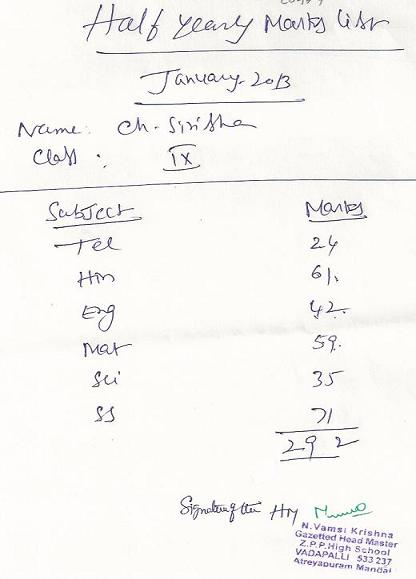 Half Yearly Marks List
January-2013
Name: Ch. Sirisha
Class : IX
Subject Marks
Tel 24
Hin 61.
Eng 42.
Mat 59.
Sci 35
SS 71
292
Signature of the HM
N.Vamsi Krishna
Gazetted Head Master
Z.P.P.High School
VADAPALLI 533 237
Atreyapuram Mandal